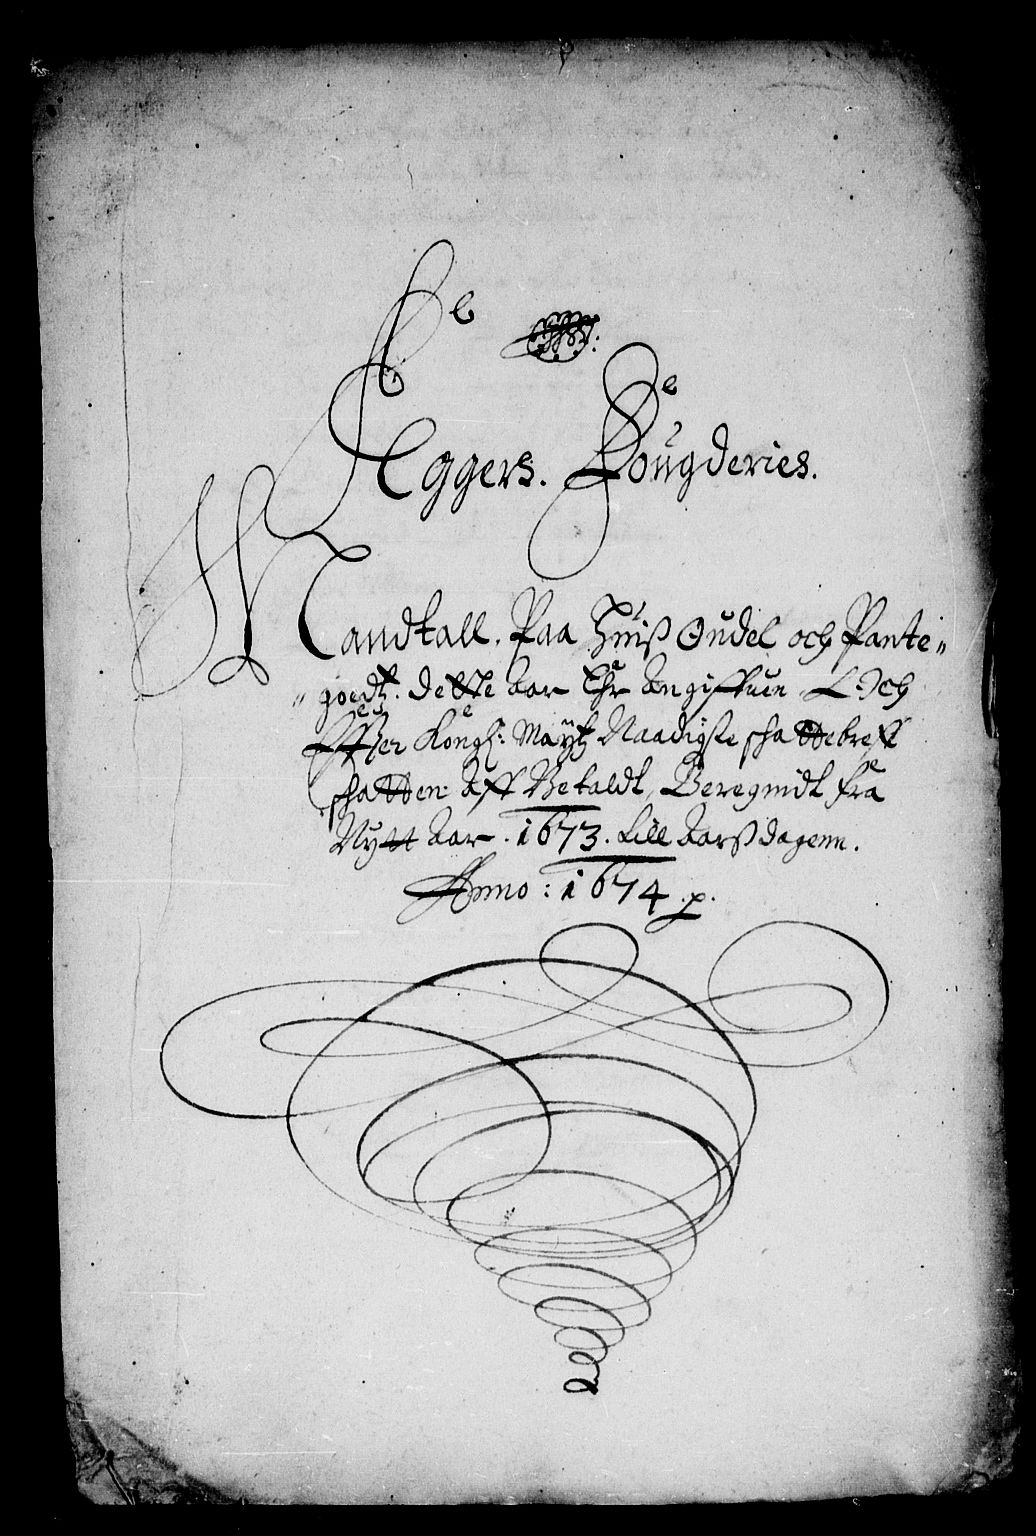 Eggers. Fougderies.
Mandtall. Paa Huiß Oudel och Pante„
„goedtz. dette Aar Ehr Angiffuen. Och
Effter Kongl: Maytz Naadigste schattebreff
schatten Aff Betaldt, Beregnidt fra
Nytt Aar. 1673. till Aarßdagenn.
Anno: 1674 p.